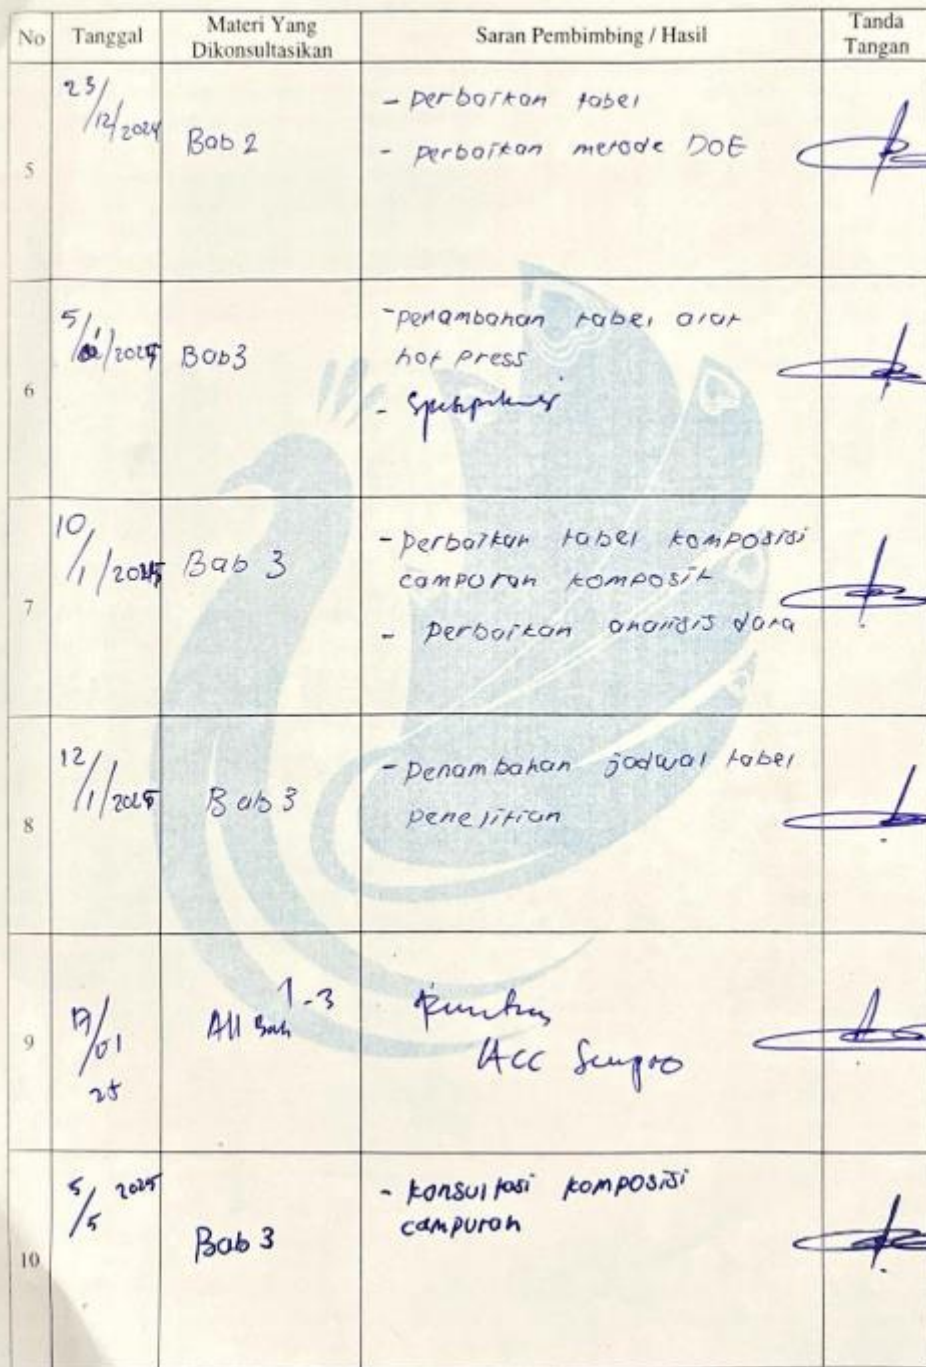 No Tanggal Materi Yang Dikonsultasikan Saran Pembimbing / Hasil Tanda Tangan
5 23/12/2024 Bab 2
- perbaikan tabel
- perbaikan metode DOE
6 5/ /2025 Bab 3
- penambahan tabel alat
hot press
-
7 10/1/2025 Bab 3
- perbaikan tabel komposisi
campuran komposit
- perbaikan analisis data
8 12/1/2025 Bab 3
- penambahan jadwal tabel
penelitian
9 17/01 25 All Bab 1-3
ACC Sempro
10 5/5 2025 Bab 3
- konsultasi komposisi
campuran